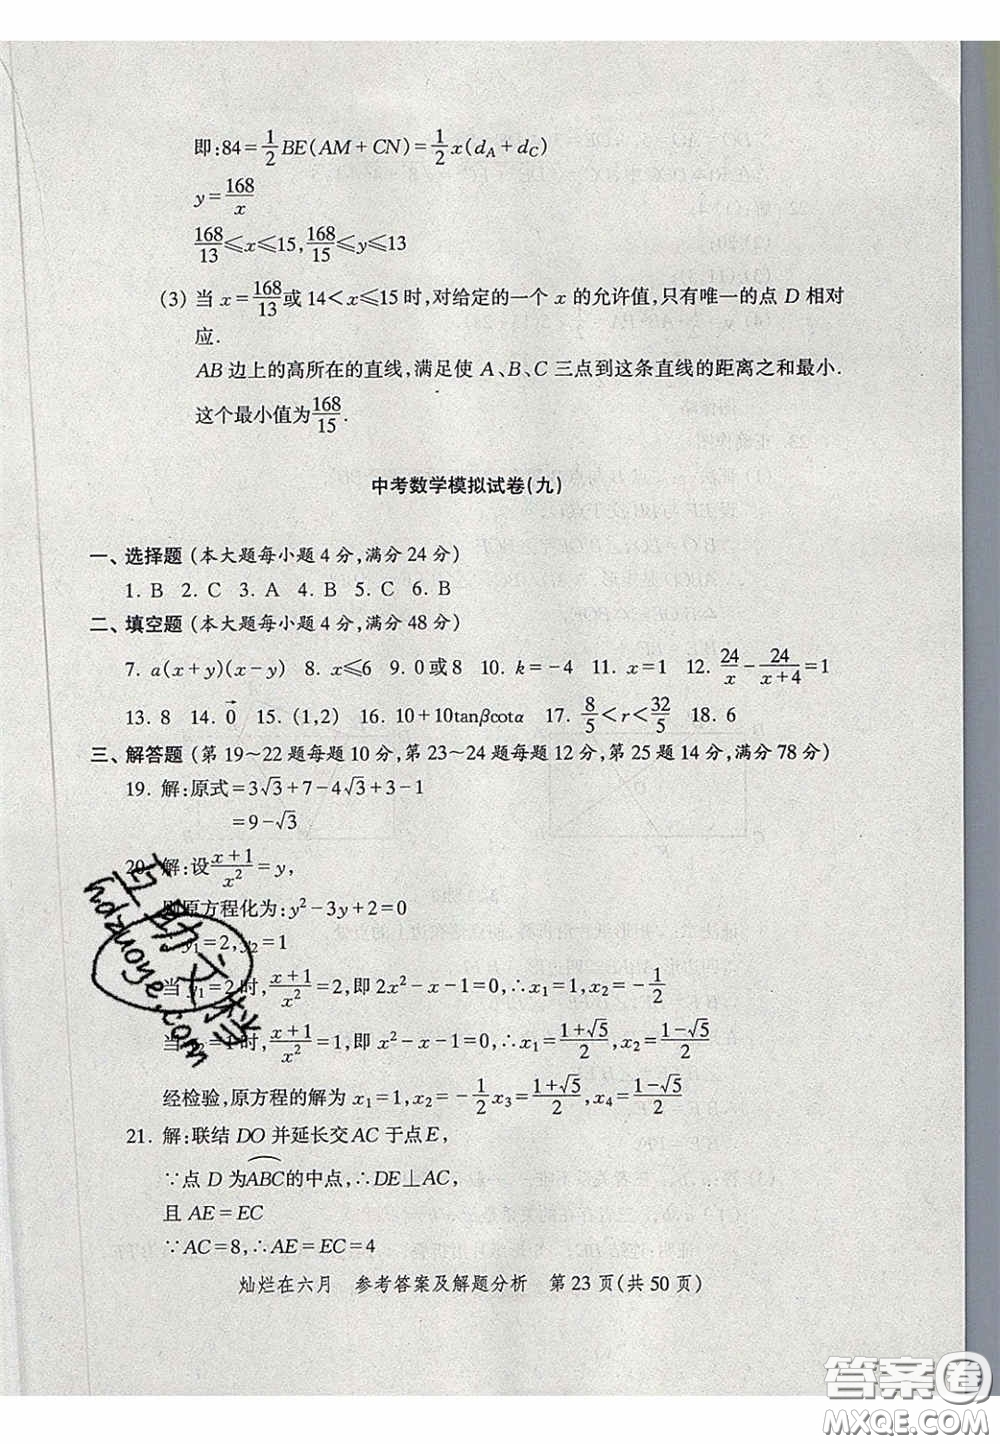 即:84=1/2 BE(AM+CN)=1/2 x(d_A+d_C)
y=168/x
168/13≤x≤15,168/15≤y≤13
(3) 当 x=168/13或 14<x≤15 时,对给定的一个 x 的允许值,只有唯一的点 D 相对
应.
AB 边上的高所在的直线,满足使 A、B、C 三点到这条直线的距离之和最小.
这个最小值为168/15.
中考数学模拟试卷(九)
一、选择题 (本大题每小题 4 分,满分 24 分)
1. B 2. C 3. A 4. B 5. C 6. B
二、填空题 (本大题每小题 4 分,满分 48 分)
7. a(x+y)(x-y) 8. x≤6 9. 0或8 10. k=-4 11. x=1 12. 24/x-24/(x+4)=1
13. 8 14. 0⃗ 15. (1,2) 16. 10+10tanβcotα 17. 8/5<r<32/5 18. 6
三、解答题 (第 19~22 题每题 10 分,第 23~24 题每题 12 分,第 25 题 14 分,满分 78 分)
19. 解:原式=3√3+7-4√3+3-1
=9-√3
20. 解:设(x+1)/x²=y,
则原方程化为:y²-3y+2=0
y₁=2,y₂=1
当 y₁=2时,(x+1)/x²=2,即2x²-x-1=0,∴x₁=1,x₂=-1/2
当 y₂=1时,(x+1)/x²=1,即 x²-x-1=0,∴x₁=(1+√5)/2,x₂=(1-√5)/2
经检验,原方程的解为 x₁=1,x₂=-1/2 x₃=(1+√5)/2,x₄=(1-√5)/2
21. 解:联结 DO 并延长交 AC 于点 E,
∵点 D 为⌒ABC的中点,∴DE⊥AC,
且 AE=EC
∵AC=8,∴AE=EC=4
灿烂在六月 参考答案及解题分析 第 23 页(共 50 页)
互助文档
hdzuoye.com
答案圈
MXQE.COM